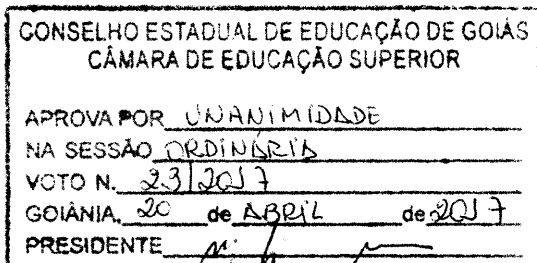 CONSELHO ESTADUAL DE EDUCAÇÃO DE GOIÁS
CÂMARA DE EDUCAÇÃO SUPERIOR
APROVA POR UNANIMIDADE
NA SESSÃO ORDINÁRIA
VOTO N. 23/2017
GOIÂNIA, 20 de ABRIL de 2017
PRESIDENTE